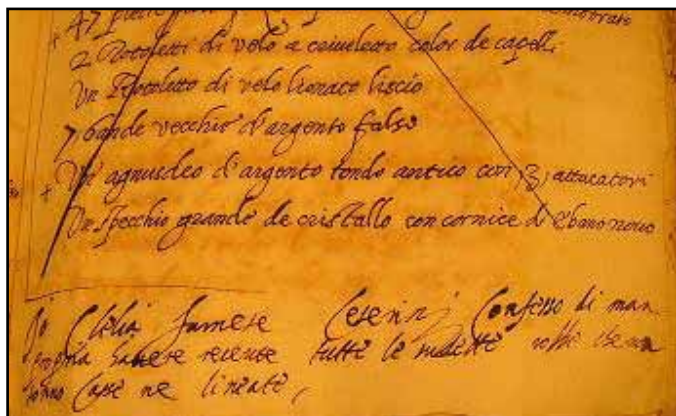 47
2 Rotoletti di velo a cimeletto color de capelli
Un Rotoletto di velo lionato liscio
7 bande vecchie d'argento falso
+ Un agnusdeo d'argento tondo antico con 3 attacatori
Un specchio grande de cristallo con cornice di Ebano novo
Io Clelia Farnese Cesarini Confesso di man
propria havere recevute tutte le sudette robbe che
sonno